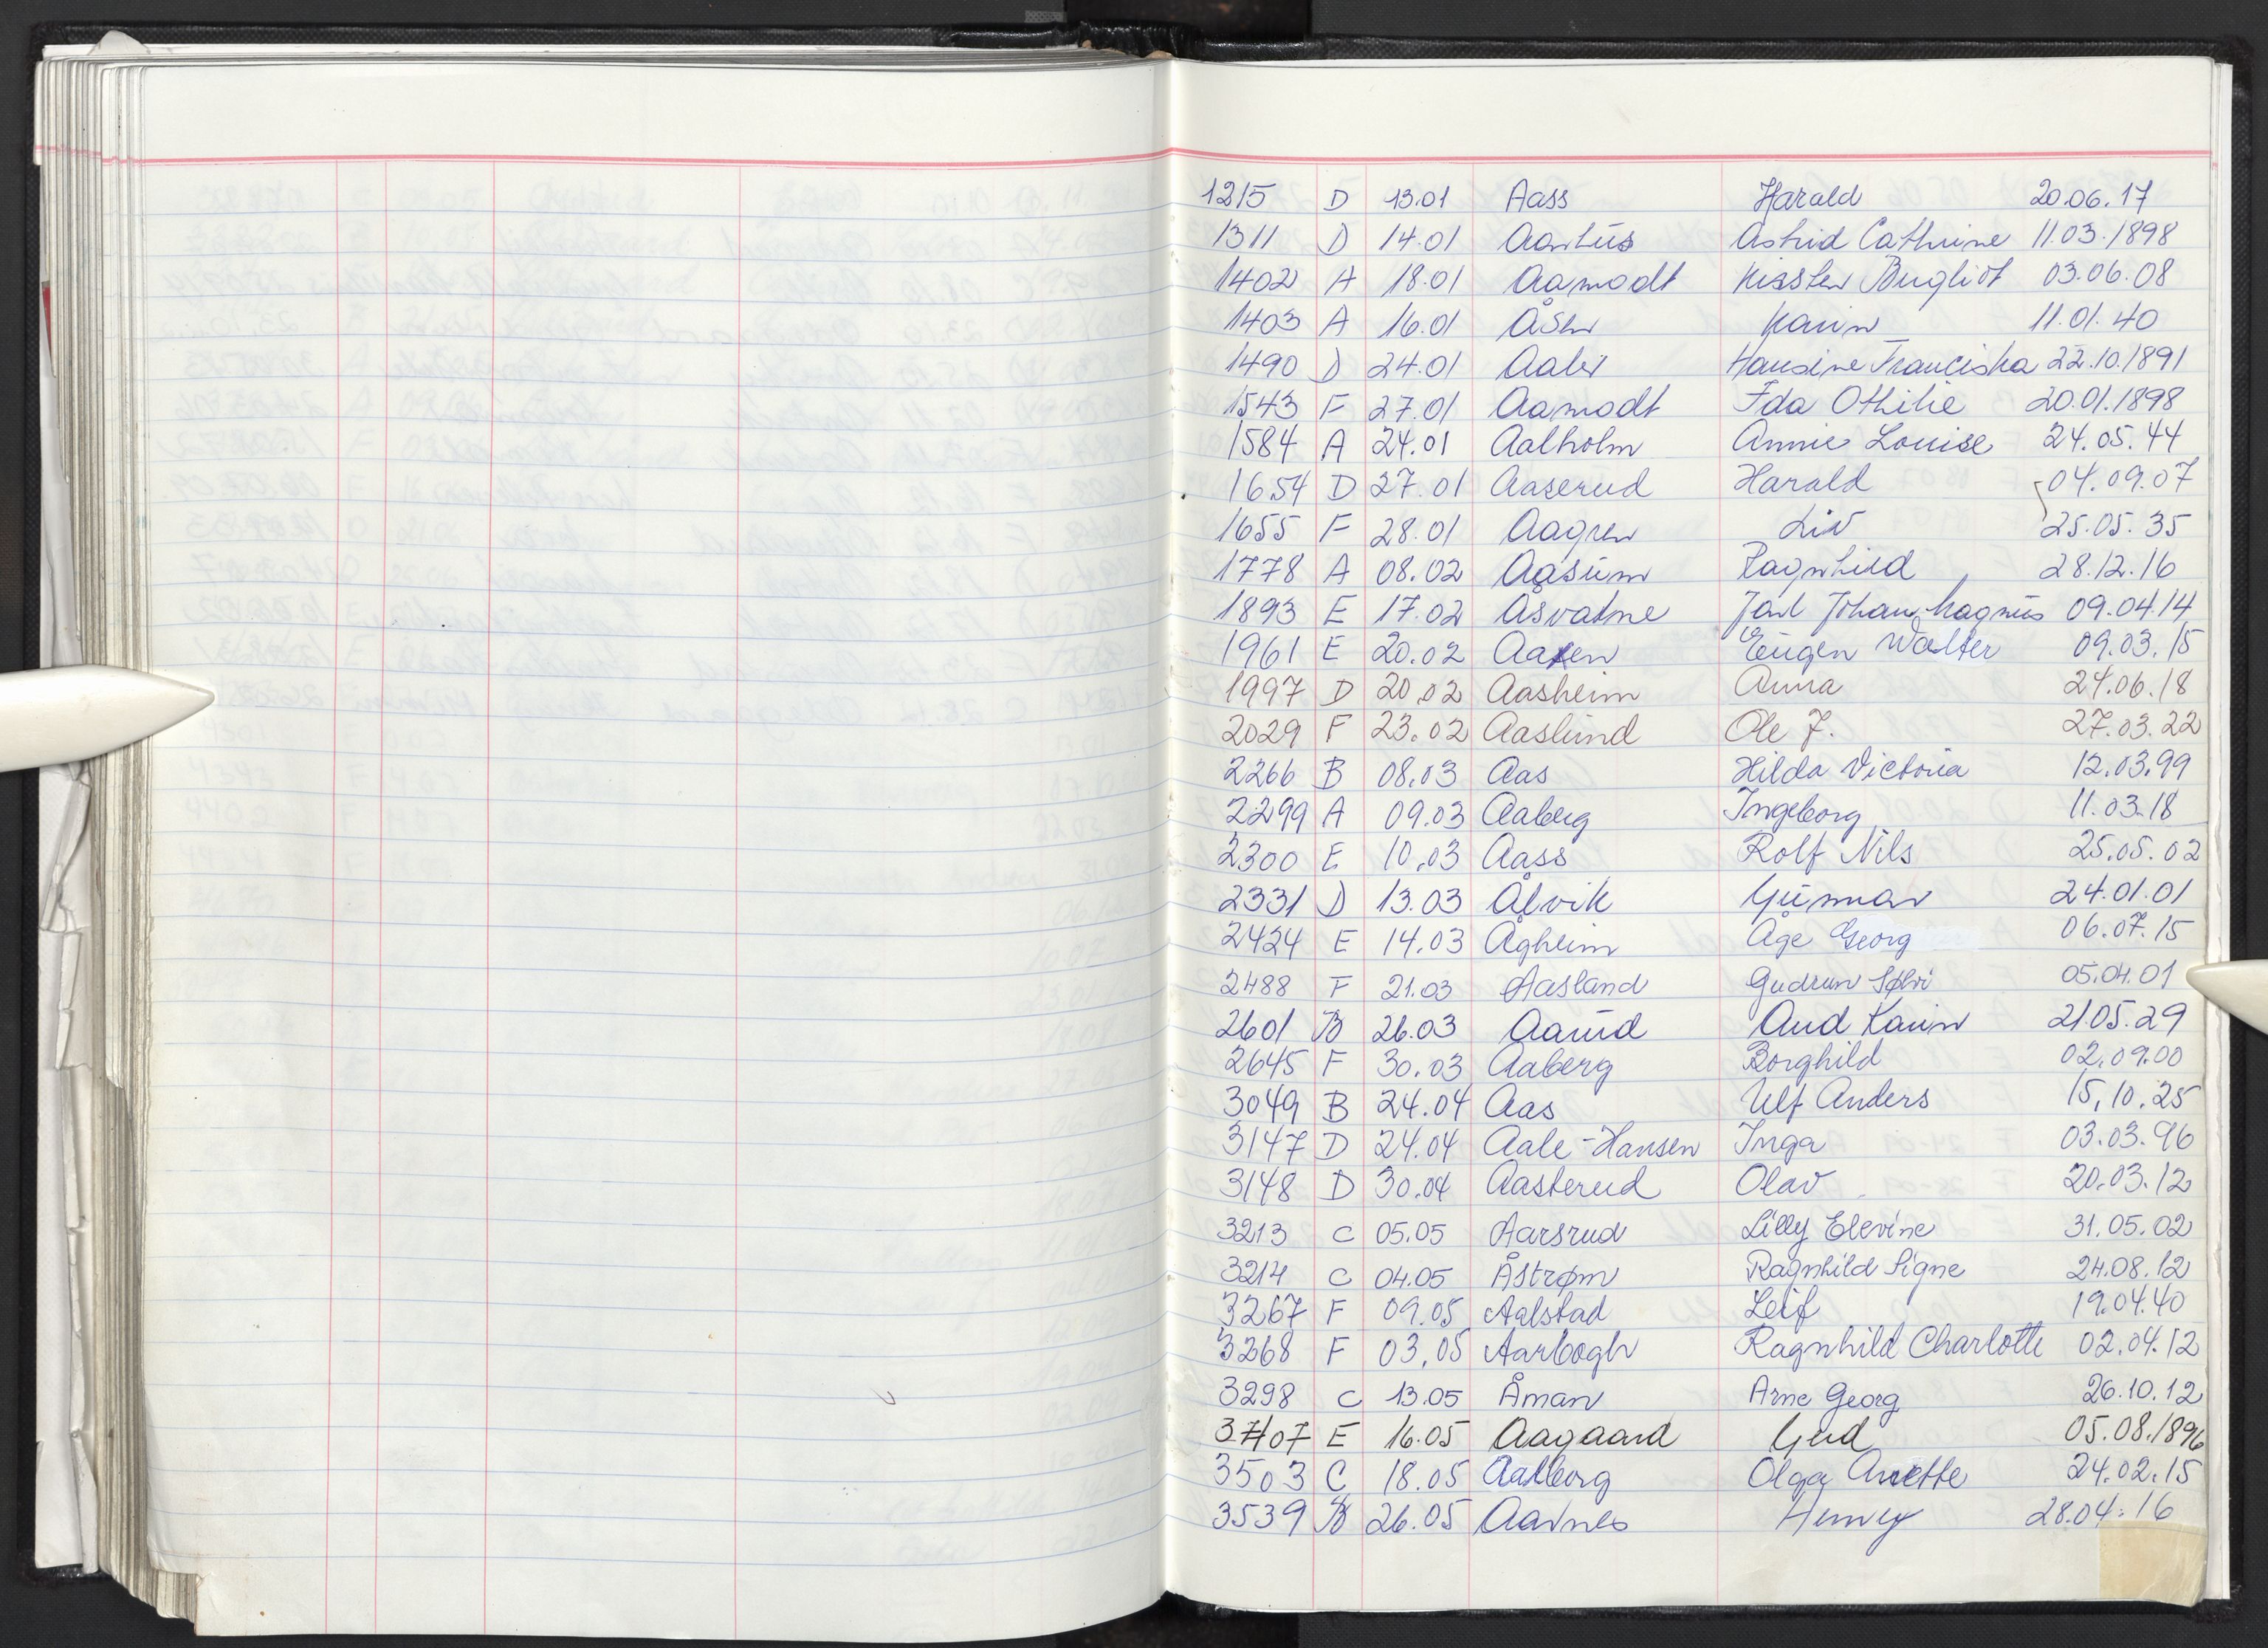 1215 D 13.01 Aass Harald 20.06.17
1311 D 14.01 Aarhüs Astrid Cathrine 11.03.1898
1402 A 18.01 Aamodt Kirsten Bugliot 03.06.08
1403 A 16.01 Åsen Karin 11.01.40
1490 D 24.01 Aaler Hansine Franciska 22.10.1891
1543 F 27.01 Aamodt Ida Othilie 20.01.1898
1584 A 24.01 Aalholm Annie Louise 24.05.44
1654 D 27.01 Aaserud Harald 04.09.07
1655 F 28.01 Aagren Liv 25.05.35
1778 A 08.02 Aasüm Ragnhild 28.12.16
1893 E 17.02 Åsvatne Jarl Johan Magnus 09.04.14
1961 E 20.02 Aasen Eugen Walter 09.03.15
1997 D 20.02 Aasheim Anna 24.06.18
2029 F 23.02 Aaslund Ole J. 27.03.22
2266 B 08.03 Aas Hilda Victoria 12.03.99
2299 A 09.03 Aaberg Ingeborg 11.03.18
2300 E 10.03 Aass Rolf Nils 25.05.02
2331 D 13.03 Ålvik Gunnar 24.01.01
2424 E 14.03 Ågheim Åge Georg 06.07.15
2488 F 21.03 Aasland Gudrun Sølvi 05.04.01
2601 B 26.03 Aarud Aud Karin 21.05.29
2645 F 30.03 Aaberg Borghild 02.09.00
3049 B 24.04 Aas Ulf Anders 15.10.25
3147 D 24.04 Aale-Hansen Inga 03.03.96
3148 D 30.04 Aasterud Olav 20.03.12
3213 C 05.05 Aarsrud Lilly Elevine 31.05.02
3214 C 04.05 Åstrøm Ragnhild Signe 24.08.12
3267 F 09.05 Aalstad Leif 19.04.40
3268 F 03.05 Aarbogh Ragnhild Charlotte 02.04.12
3298 C 13.05 Åman Arne Georg 26.10.12
E 16.05 Aagaard Gerd 05.08.1896
3503 C 18.05 Aalborg Olga Anette 24.02.15
3539 B 26.05 Aarnes Henry 28.04.16